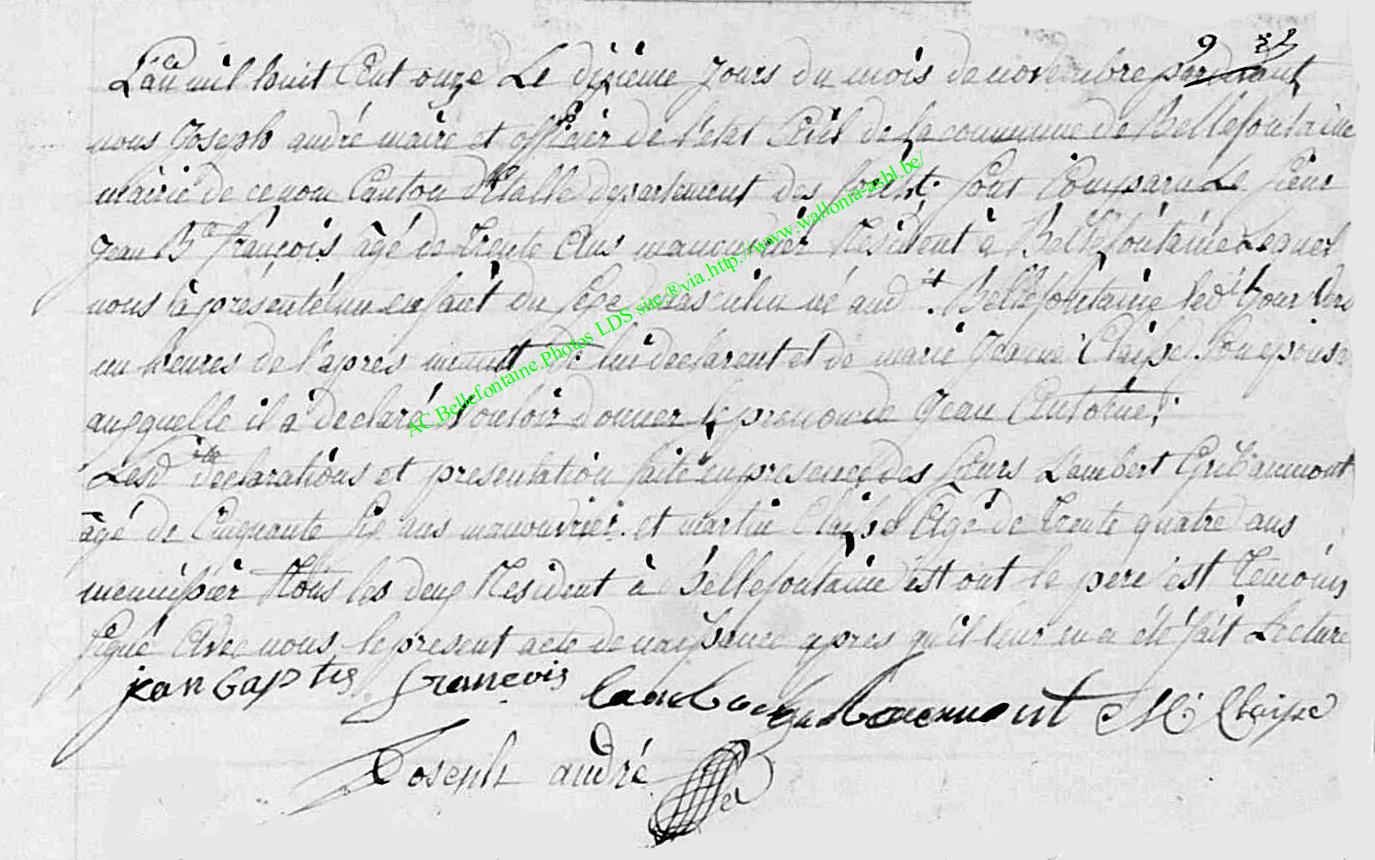 9
L'an mil huit Cent onze Le dixieme jours du mois de novembre pardevant
nous Joseph andré maire et officier de l'etat Civil de la commune de Bellefontaine
mairie de ce nom Canton d'Etalle departement des forest; sont Comparu Le sieur
Jean Bte françois âgé de trente Ans manouvrier Resident à Bellefontaine Lequel
nous à presenté un enfant du sexe Masculin né aud it. Bellefontaine led it jour vers
un heures de l'apres minuit de lui declarent et de marie Jeanne Claisse son epouse
auxquelle il a declaré vouloir donner le prenom de Jean Antoine;
Lesd ites declarations et presentation faite en presence des sieurs Lambert Gribaumont
âgé de Cinquante six ans manouvrier. et martin Claisse Agé de trente quatre ans
menuisier Tous les deux Resident à Bellefontaine est ont le pere est Temoins
signé Avec nous le present acte de naissance apres qu'il leur en a été fait Lecture
jean baptis françois lambert gribaumont M Claisse
Joseph andré
AC Bellefontaine.Photos LDS site ®via http://www.wallonia-asbl.be/